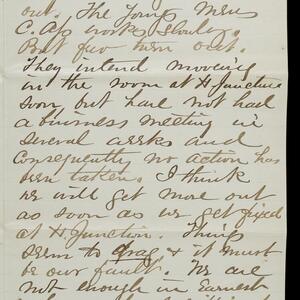 out. The Young Mens
C. As works slowly.
But few turn out.
They intend mooveing
in the room at H Junction
soon but have not had
a buisness meeting in
several weeks and
consequently no action has
been taken. I think
we will get more out
as soon as we get fixed
at H Junction. Things
seem to drag & it must
be our fault. We are
not enough in earnest